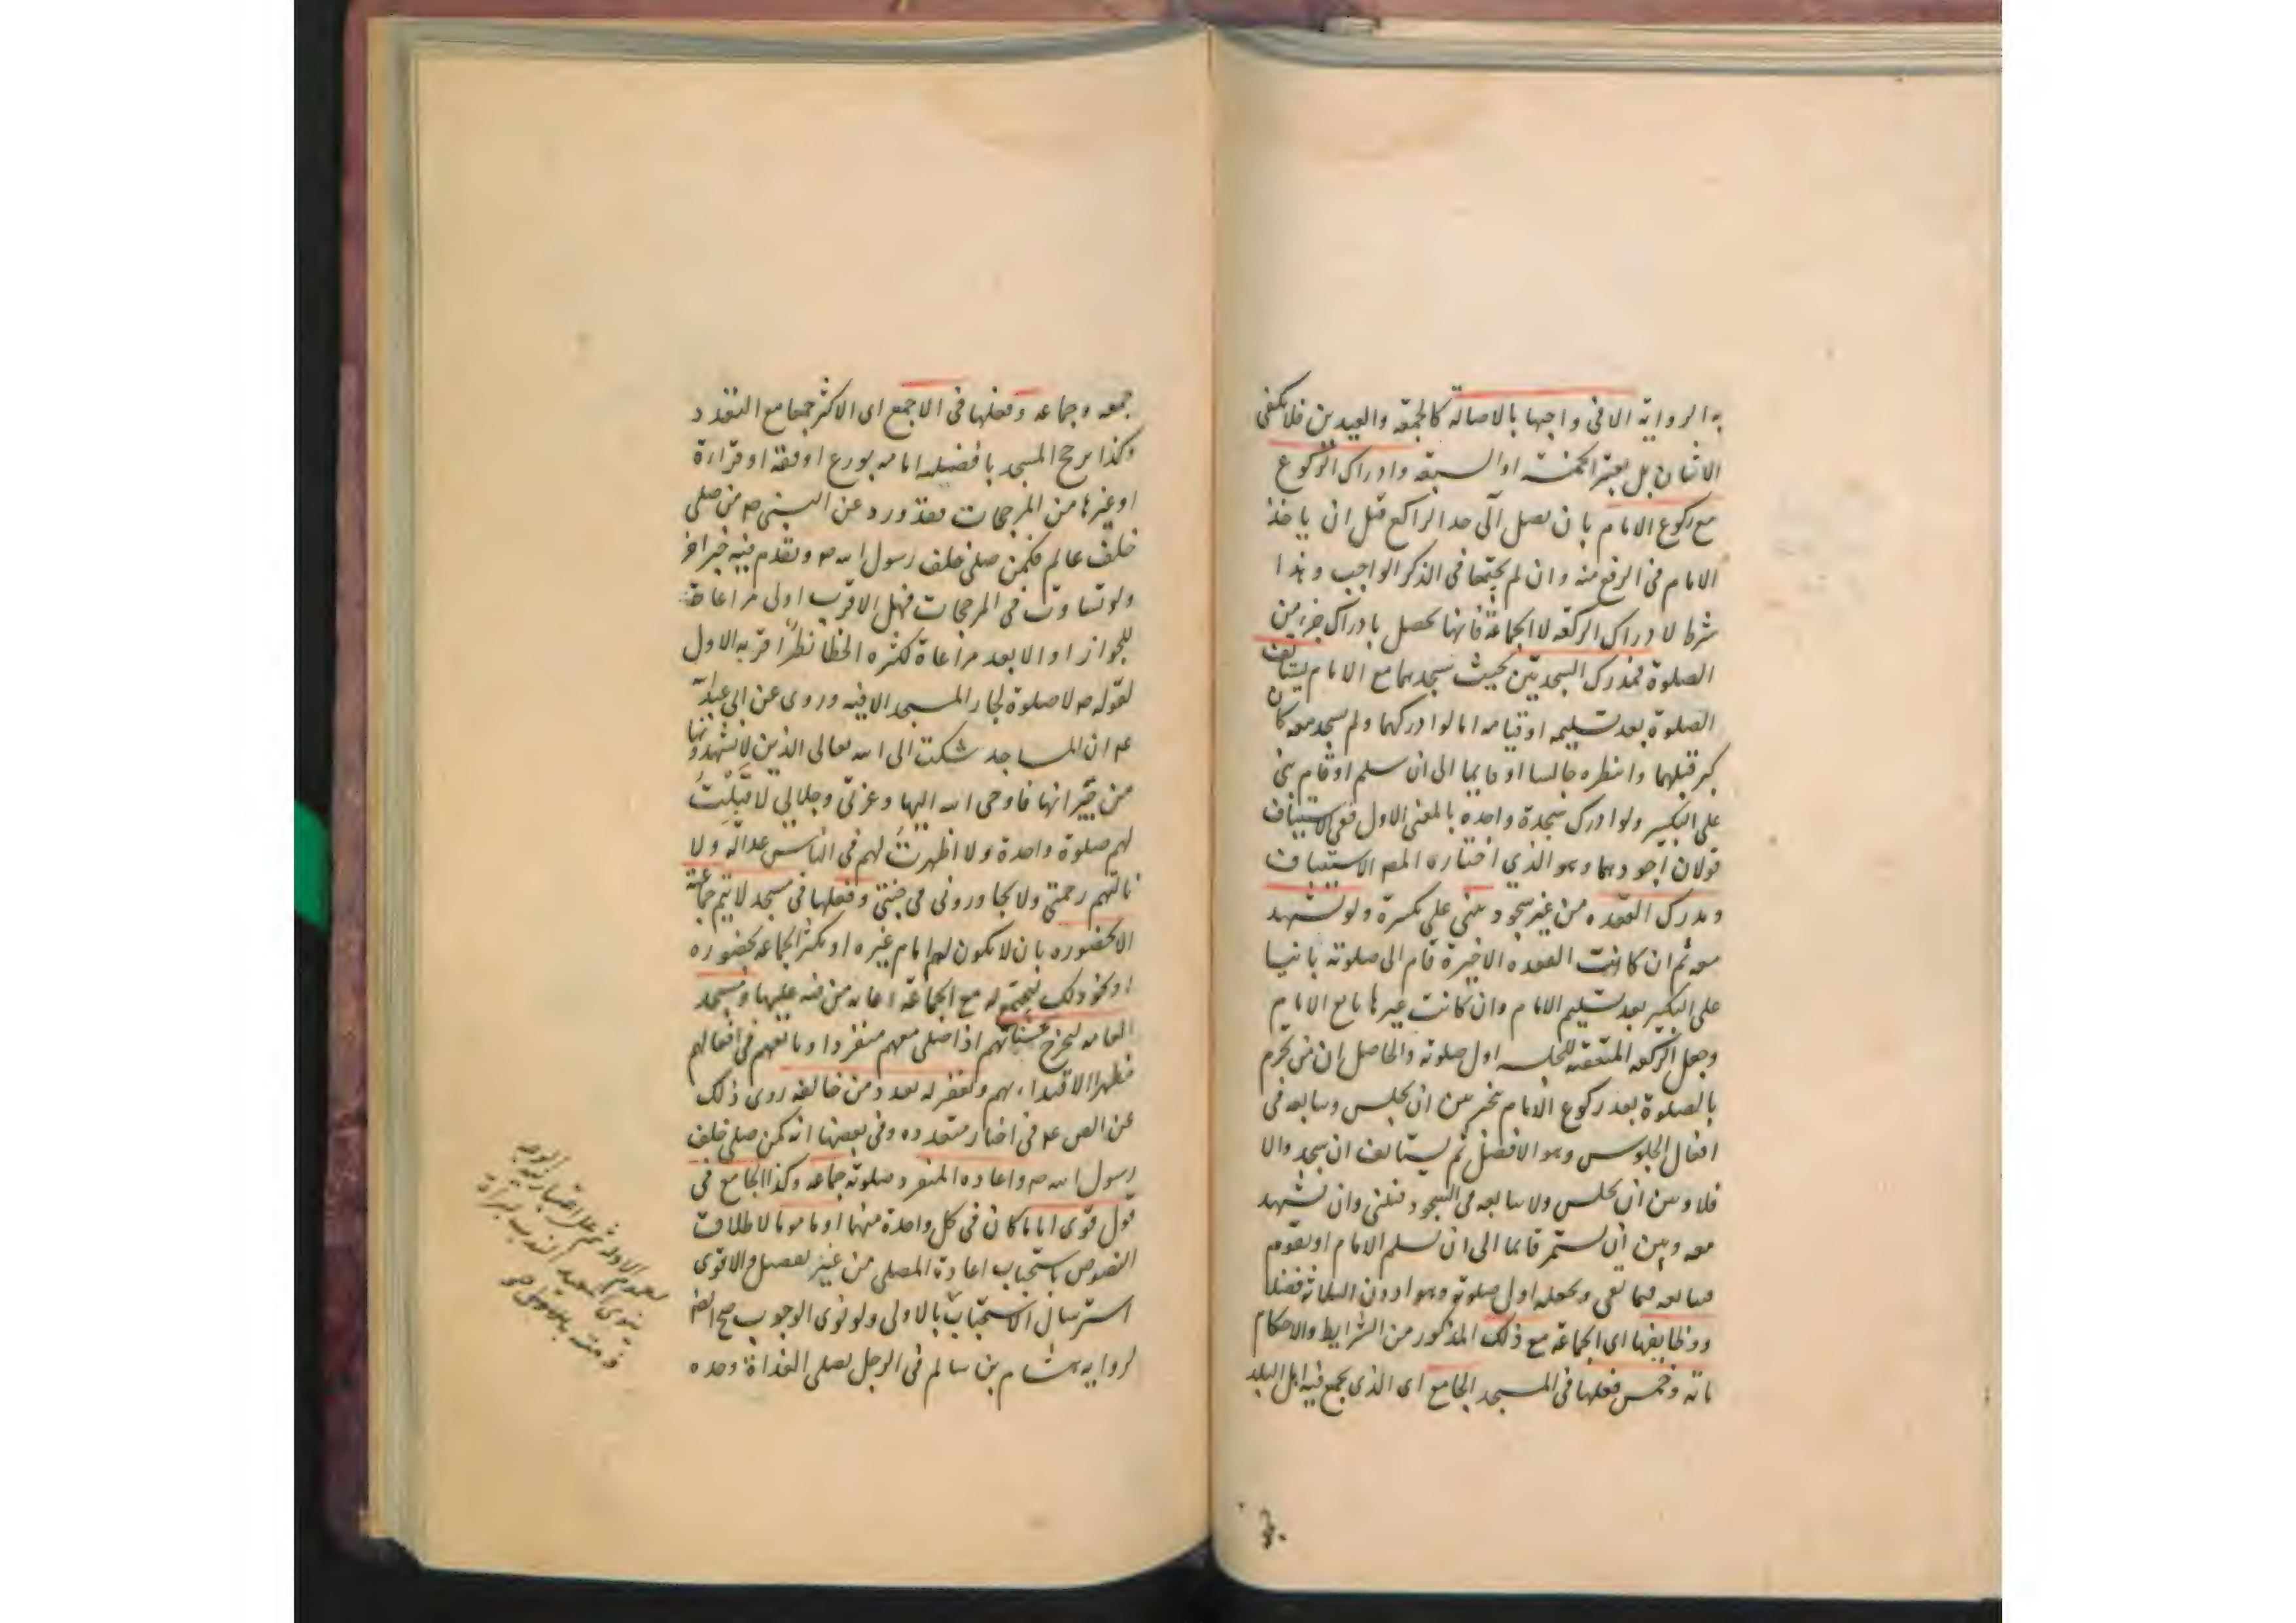 به الرواية الا فى واجبها بالاصالة كالجمعة والعيدين فلا يكفى
الاثنان بل يعتبر الخمسة او السبعة وادراك الركوع
مع ركوع الامام بان يصل الى حد الراكع قبل ان ياخذ
الامام فى الرفع منه وان لم يجتمعا فى الذكر الواجب وهذا
شرط لادراك الركعة لا الجماعة فانها تحصل بادراك جزء من
الصلوة فمدرك السجدتين بحيث يسجدهما مع الامام يستانف
الصلوة بعد تسليمه او قيامه اما لو ادركهما ولم يسجد معه كان
كبر قبلهما وانتظره جالسا او قايما الى ان سلم او قام بنى
على التكبير ولو ادرك سجدة واحدة بالمعنى الاول ففى الاستيناف
قولان اجودهما وهو الذي اختاره المص الاستيناف
ومدرك القعدة من غير سجود يبنى على تكبيرة ولو تشهد
معه ثم ان كانت القعدة الاخيرة قام الى صلوته بانيا
على التكبير بعد تسليم الامام وان كانت غيرها تابع الامام
وجعل الركعة المتعقبة للجلسة اول صلوته والحاصل ان من تحرم
بالصلوة بعد ركوع الامام تخير بين ان يجلس ويتابعه فى
افعال الجلوس وهو الافضل ثم يستانف ان سجد والا
فلا وبين ان يجلس ولا يتابعه فى السجود فيبنى وان تشهد
معه وبين ان يستمر قائما الى ان يسلم الامام او يقوم
فيتابعه فيما بقى ويجعله اول صلوته وهو ادون الثلاثة فضلا
ووظايفها اى الجماعة مع ذلك المذكور من الشرايط والاحكام
مائة وخمس فعلها فى المسجد الجامع اى الذى يجمع فيه اهل البلد
جمعة وجماعة وفعلها فى الاجمع اى الاكثر جمعا مع التعدد
وكذا يرجح المسجد بافضلية امامه بورع او فقه او قراءة
او غيرها من المرجحات فقد ورد عن النبى ص من صلى
خلف عالم فكمن صلى خلف رسول الله ص وتقدم فيه خبر اخر
ولو تساوت فى المرجحات فهل الاقرب اولى مراعاة
للجواز او الابعد مراعاة لكثرة الخطا نظرا قربه الاول
لقوله ص لا صلوة لجار المسجد الا فيه وروى عن ابى عبد الله
ع ان المساجد شكت الى الله تعالى الذين لا يشهدونها
من جيرانها فاوحى الله اليها وعزتى وجلالي لا قبلت
لهم صلوة واحدة ولا اظهرت لهم فى الناس عدالة ولا
نالتهم رحمتى ولا يجاورونى فى جنتى وفعلها فى مسجد لا يتم جماعته
الا بحضوره بان لا يكون لهم امام غيره او تكثر الجماعة بحضوره
او نحو ذلك ليجتمع له مع الجماعة اعانة من فيه عليها ومسجد
العامة ليخرج بحسناتهم اذا صلى معهم منفردا وتابعهم فى افعالهم
مظهرا الاقتداء بهم وتغفر له بعدد من خالفه روى ذلك
عن الص ع فى اخبار متعددة وفى بعضها انه كمن صلى خلف
رسول الله ص واعادة المنفرد صلوته جماعة وكذا الجامع فى
قول قوى اماما كان فى كل واحدة منهما او ماموما لاطلاق
النصوص باستحباب اعادة المصلى من غير تفصيل والاقوى
استرسال الاستحباب بالاولى ولو نوى الوجوب صح ايضا
لرواية هشام بن سالم فى الرجل يصلى الغداة وحده